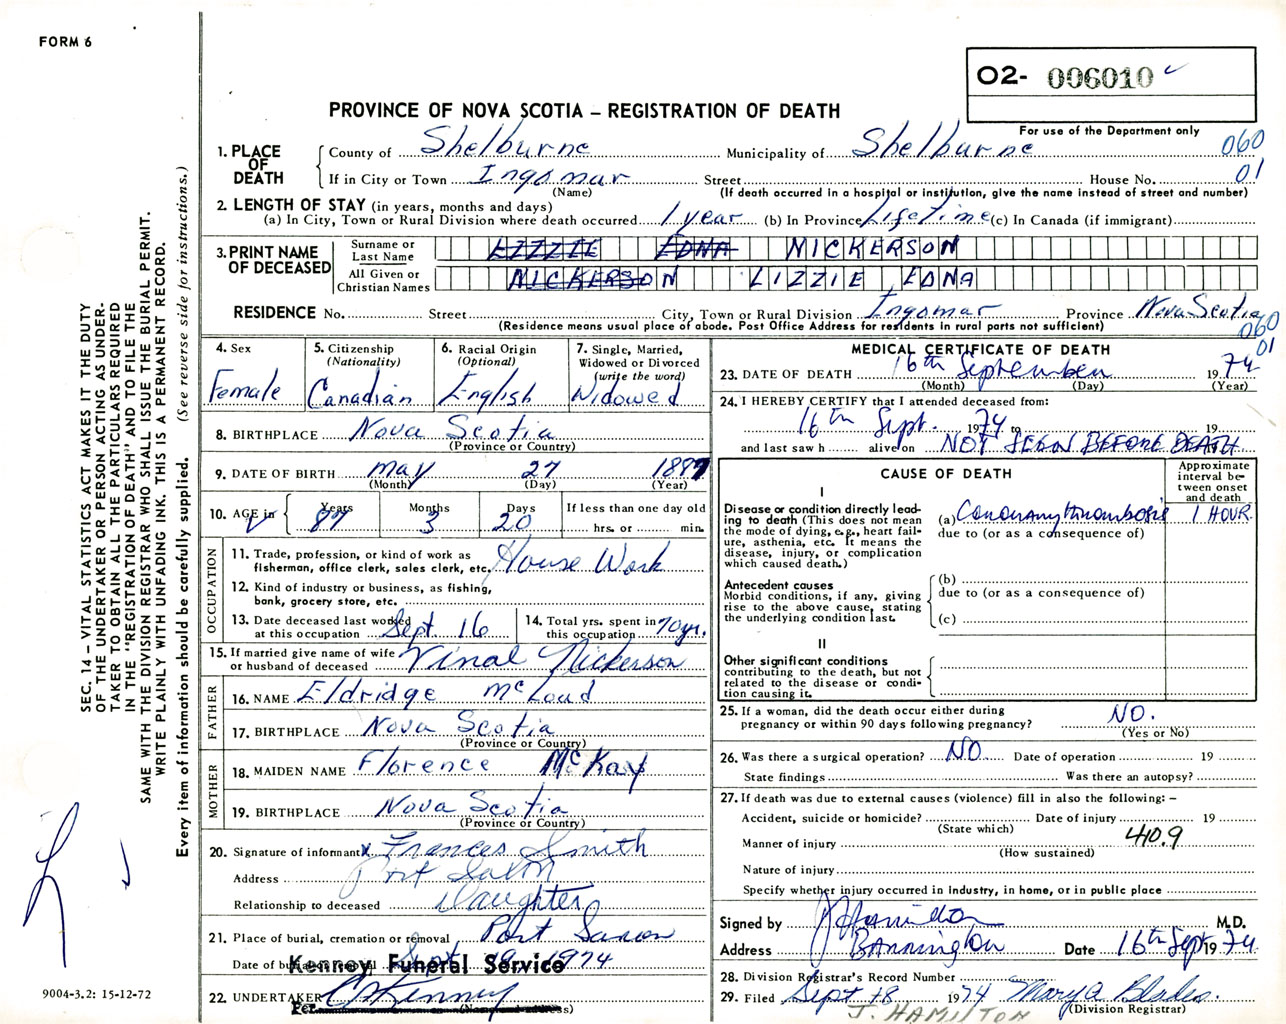 FORM 6
O2- 006010
PROVINCE OF NOVA SCOTIA – REGISTRATION OF DEATH
For use of the Department only
060
01
1. PLACE OF DEATH
County of Shelburne Municipality of Shelburne
If in City or Town Ingomar Street House No.
(Name) (If death occurred in a hospital or institution, give the name instead of street and number)
2. LENGTH OF STAY (in years, months and days)
(a) In City, Town or Rural Division where death occurred 1 year (b) In Province Lifetime (c) In Canada (if immigrant)
3. PRINT NAME OF DECEASED
Surname or Last Name LIZZIE EDNA NICKERSON
All Given or Christian Names NICKERSON LIZZIE EDNA
RESIDENCE No. Street City, Town or Rural Division Ingomar Province Nova Scotia
(Residence means usual place of abode. Post Office Address for residents in rural parts not sufficient)
060
01
4. Sex Female
5. Citizenship (Nationality) Canadian
6. Racial Origin (Optional) English
7. Single, Married, Widowed or Divorced (write the word) Widowed
8. BIRTHPLACE Nova Scotia
(Province or Country)
9. DATE OF BIRTH May 27 1887
(Month) (Day) (Year)
10. AGE in Years 87 Months 3 Days 20 If less than one day old
hrs. or min.
OCCUPATION
11. Trade, profession, or kind of work as fisherman, office clerk, sales clerk, etc. House Work
12. Kind of industry or business, as fishing, bank, grocery store, etc.
13. Date deceased last worked at this occupation Sept 16
14. Total yrs. spent in this occupation 70 yr.
15. If married give name of wife or husband of deceased Vinal Nickerson
FATHER
16. NAME Eldridge McLoud
17. BIRTHPLACE Nova Scotia
(Province or Country)
MOTHER
18. MAIDEN NAME Florence McKay
19. BIRTHPLACE Nova Scotia
(Province or Country)
20. Signature of informant x Frances Smith
Address Port Saxon
Relationship to deceased Daughter
21. Place of burial, cremation or removal Port Saxon
Date of burial Sept 19 1974
Kenney Funeral Service
22. UNDERTAKER C Kenney
Per.
MEDICAL CERTIFICATE OF DEATH
23. DATE OF DEATH 16th September 1974
(Month) (Day) (Year)
24. I HEREBY CERTIFY that I attended deceased from:
16th Sept. 1974 to 19
and last saw h alive on NOT SEEN BEFORE DEATH
CAUSE OF DEATH
Approximate interval between onset and death
I
Disease or condition directly leading to death (This does not mean the mode of dying, e.g., heart failure, asthenia, etc. It means the disease, injury, or complication which caused death.)
(a) Coronary thrombosis 1 HOUR
due to (or as a consequence of)
Antecedent causes
Morbid conditions, if any, giving rise to the above cause, stating the underlying condition last.
(b)
due to (or as a consequence of)
(c)
II
Other significant conditions contributing to the death, but not related to the disease or condition causing it.
25. If a woman, did the death occur either during pregnancy or within 90 days following pregnancy? NO.
(Yes or No)
26. Was there a surgical operation? NO Date of operation 19
State findings Was there an autopsy?
27. If death was due to external causes (violence) fill in also the following: –
Accident, suicide or homicide? Date of injury 19
(State which)
Manner of injury 410.9
(How sustained)
Nature of injury
Specify whether injury occurred in industry, in home, or in public place
Signed by J Hamilton M.D.
Address Barrington Date 16th Sept 1974
28. Division Registrar's Record Number
29. Filed Sept 18 1974 Mary A Blades.
(Division Registrar)
J. HAMILTON
SEC. 14 – VITAL STATISTICS ACT MAKES IT THE DUTY
OF THE UNDERTAKER OR PERSON ACTING AS UNDER-
TAKER TO OBTAIN ALL THE PARTICULARS REQUIRED
IN THE "REGISTRATION OF DEATH" AND TO FILE THE
SAME WITH THE DIVISION REGISTRAR WHO SHALL ISSUE THE BURIAL PERMIT.
WRITE PLAINLY WITH UNFADING INK. THIS IS A PERMANENT RECORD.
Every item of information should be carefully supplied. (See reverse side for instructions.)
9004-3.2: 15-12-72